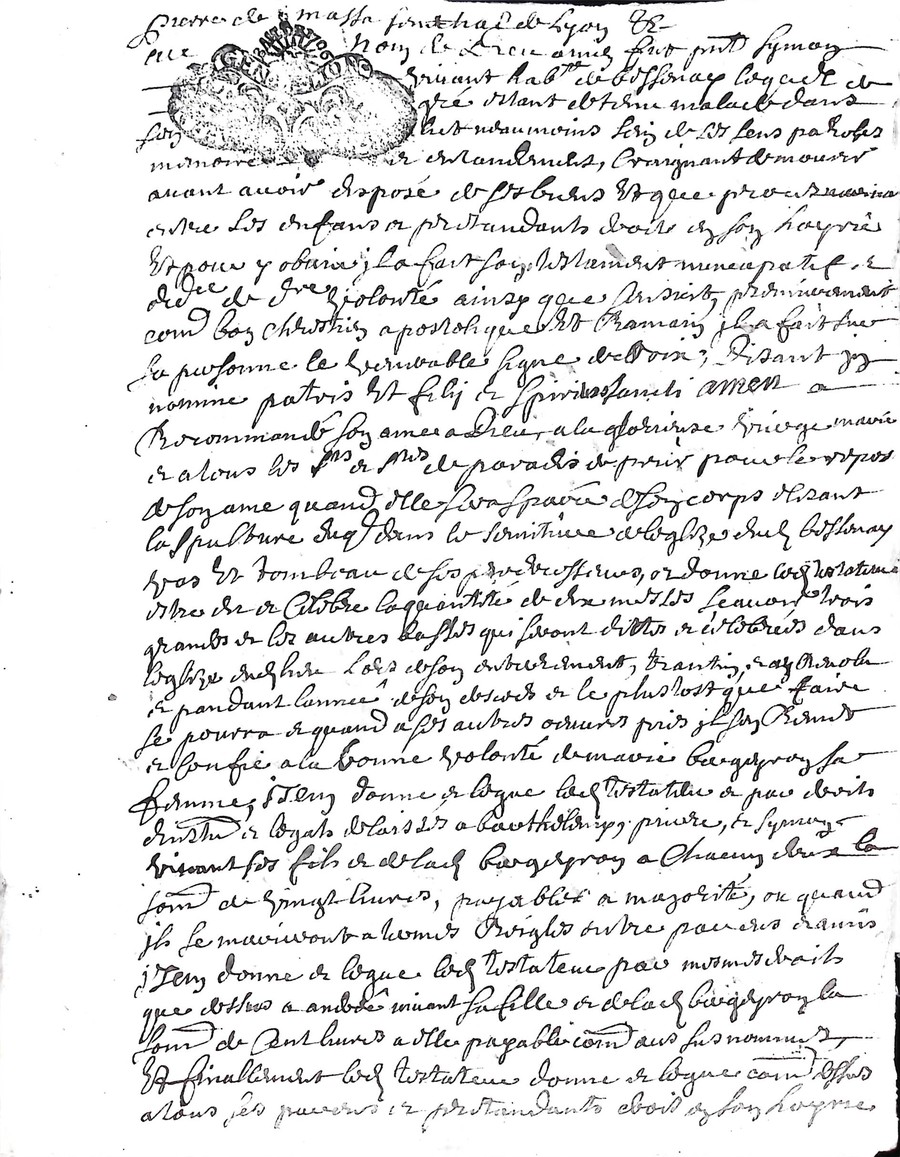 pierre de massa senechal de Lyon &c
que nom de Dieu amen fut pnt Symon
vivant habtt de bessenay lequel de
gré estant detenu malade dans
son lict neaumoins sain de ses sens parolles
memoire et entandement, Craignant de mourir
avant avoir disposé de ses biens Et que proces
entre ses enfans et pretandants droits en son hoyrie
Et pour y obvier il a fait son testament nuncupatif et
ordre de dre volonté ainsy que sensuit, premierement
comd bon Chrestien apostolique Et Romain il a fait sur
sa personne le venerable signe de Croix; Disant in
nomine patris Et filij et spiritus sancti amen a
Recommandé son ame a Dieu, a la glorieuse vierge marie
et a tous les sts et stes de paradis de prier pour le repos
de son ame quand elle sera separée de son corps elisant
sa sepulture dans le semitiere de leglize dud bessenay
vas Et tombeau de ses predecesseurs, ordonne led testateur
estre dit et Celebre la quantité de dix messes scavoir trois
grandes et les autres basses qui seront dittes et celebrées dans
leglize dud lieu Lors de son enterrement, trantin, et
et pandant lannée de son deces et le plustost que faire
se pourra et quand a ses autres oeuvres pies il sen Remet
et Confie a la bonne volonté de marie bargeyron sa
femme; jtem donne et legue led testateur et par droits
dinstn et legats delaissés a barthelemy, pierre, et Symon
vivant ses fils et de lad bargeyron a Chacun deux la
somd de vingt livres, payables a majorité, ou quand
ils se marieront a termes Reigles entre parens et amis
jtem donne et legue led testateur par mesmes droits
que dessus a andrée vivant sa fille et de lad bargeyron la
somd de Cent livres a elle payable comd aux susnommés,
Et finallement led testateur donne et legue comd dessus
a tous ses parens et pretandants droit en son hoyrie